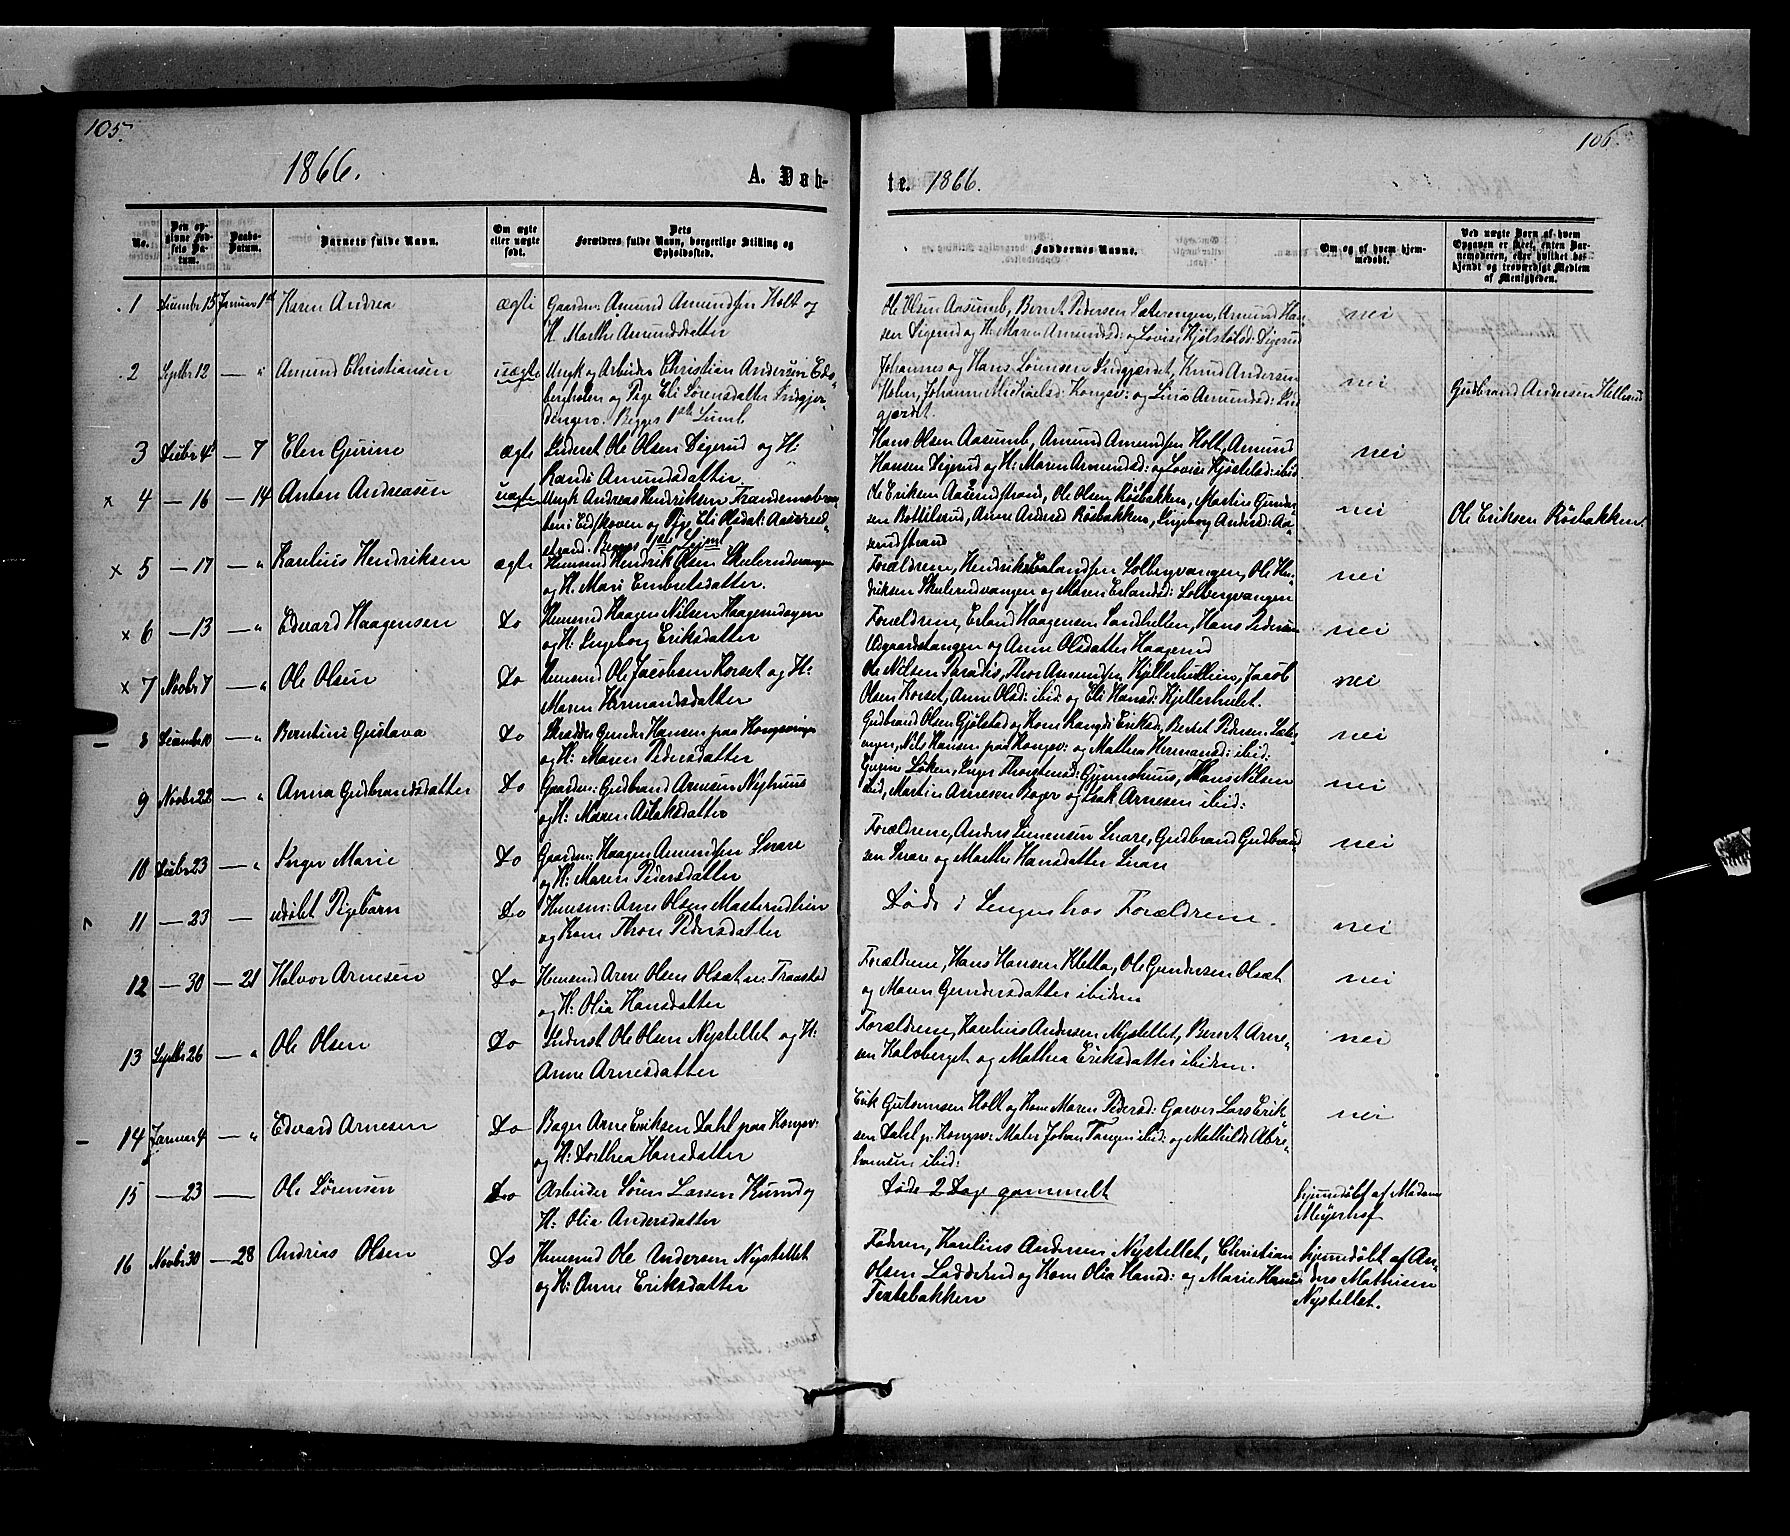 105.
106
1866.
A. Døb-
te. 1866.
No.
Den op-
givne Fød-
sels Da-
tum.
Daabs-
Datum.
Barnets fulde Navn.
Om ægte
eller uægte
født.
Dets
Forældres fulde Navn, borgerlige Stilling og
Opholdssted.
Faddernes Navne.
Om og af hvem hjem-
medøbt.
Ved uægte Børn af hvem
Opgaven er skeet, enten Bar-
nemoderen, eller hvilket be-
kjendt og troværdigt Medlem
af Menigheden.
1 Decembr 15 Januar 1st Karen Andrea ægte Gaardm: Amund Amundsen Holt og
H. Marthe Amundsdatter
Ole Olsen Aasumb, Bernt Pedersen Sæterengen, Amund Han-
sen Digerud og H: Maren Amundsd: og Lovise Kjølstelsd: Digerud
nei
2 Septbr 12 — " Amund Christiansen uægte Ungk og Arbeider Christian Andersen Eds-
bergholen og Pige Eli Sørensdatter
Begges 1ste Leierm.
Johannes og Hans Sørensen Lindgjerdet, Knud Andersen
Holm, Johanne Mikkelsd: Kongsv: og Lina Amundsd: Lind-
gjærdet.
nei
Gudbrand Andersen Hellerud
3 Decbr 4de — 7 Elen Gurine ægte Inderst Ole Olsen Digerud og H:
Randi Amundsdatter
Hans Olsen Aasumb, Amund Amundsen Holt, Amund
Hansen Digerud og H: Maren Amundsd: og Lovise Kjøstelsd: ibid
nei
x 4 — 16 — 14 Anton Andreasen uægte Ungk Andreas Hendriksen
i Eidskoven og Pige Eli Olsdat: Aaserud-
strand. Begges 1ste Leierm.
Ole Eriksen Aaserudstrand, Ole Olsen Røsbakken, Martin Gunder-
sen Bottilsrud, Anne Andersd Røsbakken, Ingeborg Andersd: Aa-
serudstrand
nei
Ole Eriksen Røsbakken.
x 5 — 17 — " Karelius Hendriksen ægte Huusmd Hendrik Olsen Skulerudvangen
og H. Mari Embretsdatter.
Forældrene, Hendrik Erlandsen Solbergvangen, Ole Hen-
driksen Skulerudvangen og Maren Erlandsd: Solbergvangen
nei
x 6 — 13 — " Edvard Haagensen Do Huusmd Haagen Nilsen Haagerudsogen
og H: Ingeborg Eriksdatter
Forældrene, Erland Haagensen Sandhellen, Hans Pedersen
Odgaardstangen og Anne Olsdatter Haagerud
nei
x 7 Novbr 7 — " Ole Olsen Do Huusmd Ole Jacobsen Korset og H:
Maren Hermandsdatter
Ole Nilsen Paradis, Thor Amundsen Kjellerhullen, Jacob
Olsen Korset, Anne Olsd: ibid: og Eli Hansd: Kjellerhulet.
nei
8 Decembr 10 — " Berntine Gustava Do Skrædder Gunder Hansen paa Kongsvinger
og H: Maren Pedersdatter
Gudbrand Olsen Gjølstad og Kone Randi Eriksd: Berthe Pedersen Sæter-
engen, Nils Hansen paa Kongsv: og Mathea Hermansd: ibid:
nei
9 Novbr 22 — " Anna Gudbrandsdatter Do Gaardm: Gudbrand Arnesen Nyhuus
og H: Maren Aslaksdatter
Gurine Løken, Inger Thorstensd: Gjemshuus, Hans Nilsen
ibid, Martin Arnesen Bager og Isak Arnesen ibid:
nei
10 Decbr 23 — " Inger Marie Do Gaardm: Haagen Amundsen Snare
og H: Maren Pedersdatter
Forældrene, Anders Simensen Snare, Gudbrand Gudbrand-
sen Snare og Marthe Hansdatter Snare
nei
11 — 23 — udøbt Pigebarn Do Huusm: Arne Olsen Masterudlien
og Kone Thron Pedersdatter
Døde i Sengen hos Forældrene.
nei
12 — 30 — 21 Halvor Arnesen Do Huusmd Arne Olsen Olsæt u: Traastad
og H: Olia Hansdatter
Forældrene, Hans Hansen Kletta, Ole Gundersen Olsæt
og Maren Gundersdatter ibidem
nei
13 Septbr 26 — " Ole Olsen Do Inderst Ole Olsen Nystellet og H:
Anne Arnesdatter
Forældrene, Karelius Andersen Nystellet, Berent Arne-
sen Kalvberget og Mathea Eriksdatter ibidem.
nei
14 Januar 4 — " Edvard Arnesen Do Bager Arne Eriksen Dahl paa Kongsv:
og H: Dorthea Hansdatter
Erik Gulsensen Holt og Kone Maren Pedersd: Garver Lars Erik-
sen Dahl p. Kongsv: Maler Johan Tangen ibid: og Mathilde Abra-
hamsen ibid:
nei
15 — 23 — Ole Sørensen Do Arbeider Søren Larsen Krund og
H: Olia Andersdatter
Døde 2 Dage gammelt
hjemdøbt af Madame
Meyerhof
16 Novbr 30 — 28 Andreas Olsen Do Huusmd Ole Andersen Nystellet
og H: Anne Eriksdatter
Faderen, Karelius Andersen Nystellet, Christian
Olsen Ladderud og Kone Olia Hansd: og Marie Hansd
Tratebakken
hjemdøbt af An-
ders Mathisen
Nystellet.